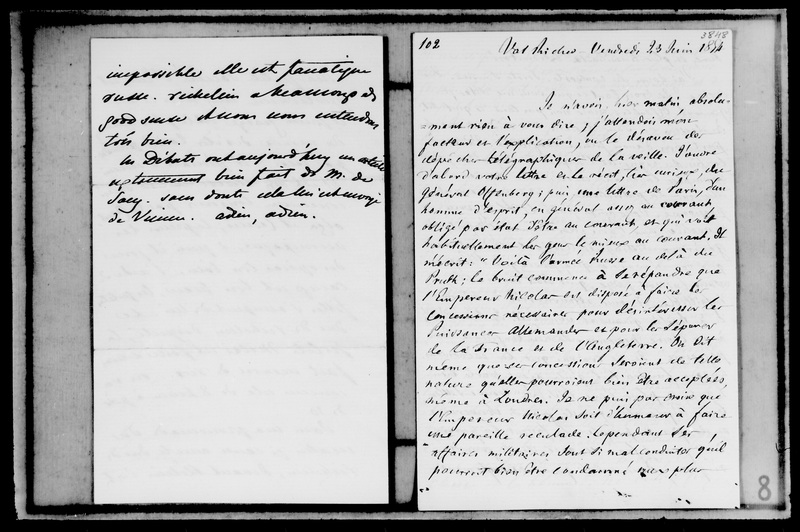 impossible elle est fanatique
russe. Richelieu a beaucoup de
good sense et nous nous entendons
très bien.
les Débats ont aujourd'huy un article
extrêmement bien fait de M. de
Sacy. sans doute cela lui est envoyé
de Vienne. adieu, adieu.
102
3848
Val Richer - Vendredi 23 Juin 1854
Je n'avois, hier matin, absolu-
-ment rien à vous dire ; j'attendois mon
facteur et l'explication, ou le désaveu des
dépêches télégraphiques de la veille. J'ouvre
d'abord votre lettre et le récit, fort curieux, du
général Offenberg ; puis, une lettre de Paris, d'un
homme d'esprit, en général assez au courant,
obligé par état d'être au courant, et qui voit
habituellement les gens le mieux au courant. Il
m'écrit : "Voilà l'armée Russe au delà du
Pruth ; le bruit commence à se répandre que
l'Empereur Nicolas est disposé à faire les
concessions nécessaires pour désintéresser les
Puissances Allemandes et pour les séparer
de la France et de l'Angleterre. On dit
même que ses concessions seroient de telle
nature qu'elles pourroient bien être acceptées,
même à Londres. Je ne puis pas croire que
l'Empereur Nicolas soit d'humeur à faire
une pareille reculade. Cependant ses
affaires militaires sont si mal conduites qu'il
pourroit bien être condamné aux plus
8